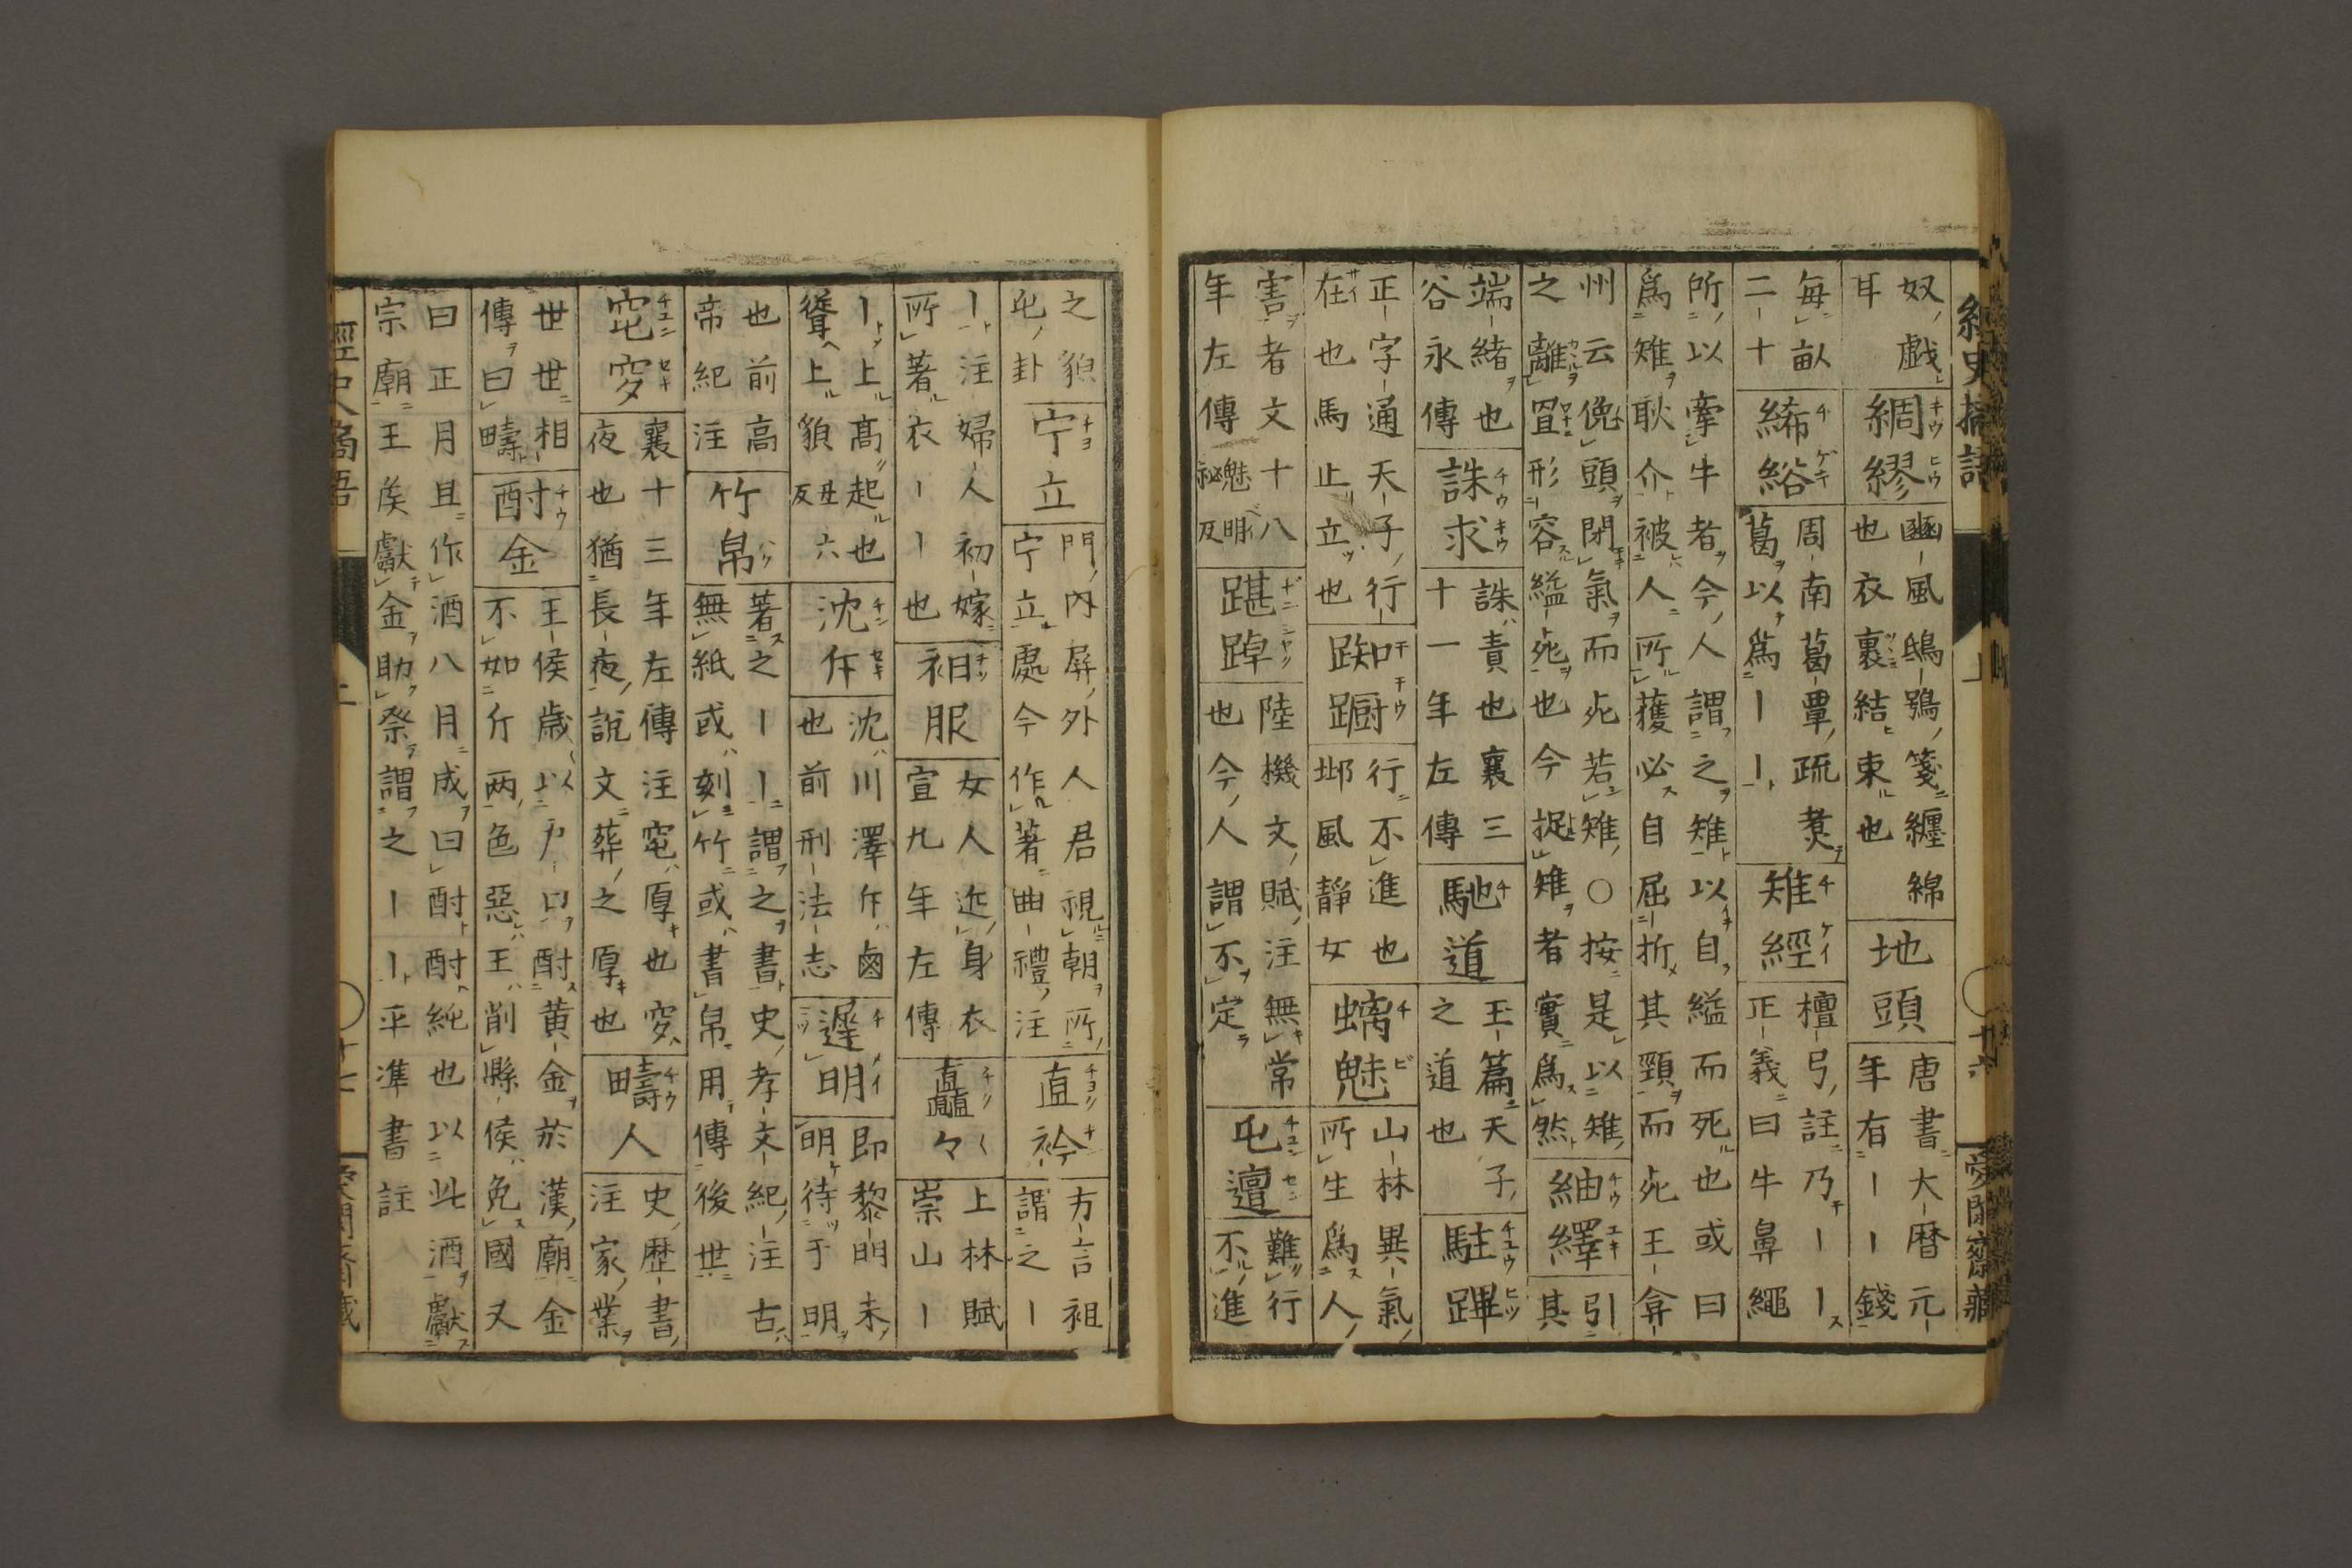 經史摘語 上 十六 愛閒齋藏
奴戲
耳
綢繆
豳風鴟鴞箋纏綿
也衣裏結束也
地頭
唐書大暦元
年有ーー錢
毎畝
二十
絺綌
周南葛覃疏煮
葛以爲ーー
雉經
檀弓註乃ーー
正義曰牛鼻繩
所以牽牛者今人謂之雉以自縊而死也或曰
爲雉耿介被人所獲必自屈折其頸而死王弇
州云俛頭閉氣而死若雉○按是以雉
之離罝形容縊死也今捉雉者實爲然
紬繹
引
其
端緒也
谷永傳
誅求
誅責也襄三
十一年左傳
馳道
玉篇天子
之道也
駐蹕
正字通天子行
在也馬止立也
踟蹰
行不進也
邶風靜女
螭魅
山林異氣
所生爲人
害者文十八
年左傳
魅明
祕反
踸踔
陸機文賦注無常
也今人謂不定
屯邅
難行
不進
之貌
屯卦
宁立
門內屏外人君視朝所
宁立處今作著曲禮注
直衿
方言袒
謂之ー
ー注婦人初嫁
所著衣ーー也
衵服
女人近身衣
宣九年左傳
矗々
上林賦
崇山ー
ー上髙起也
聳上貌丑六反
沈斥
沈川澤斥鹵
也前刑法志
遲明
即黎明未
明待于明
也前高
帝紀注
竹帛
著之ーー謂之書史孝文紀注古
無紙或刻竹或書帛用傳後世
窀穸
襄十三年左傳注窀厚也穸
夜也猶長夜說文葬之厚也
疇人
史歴書
注家業
世世相
傳曰疇
酎金
王侯歳以戸口酎黄金於漢廟金
不如斤両色惡王削縣侯免國又
曰正月旦作酒八月成曰酎酎純也以此酒獻
宗廟王矦獻金助祭謂之ーー平準書註